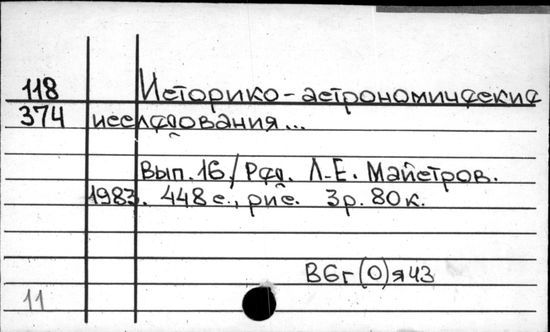 118 Историко-астрономические
374 исследования...
Вып. 16 / Ред. Л.Е. Майстров.
1983. 448 с., рис. 3р. 80к.
В6г(0)я43
11